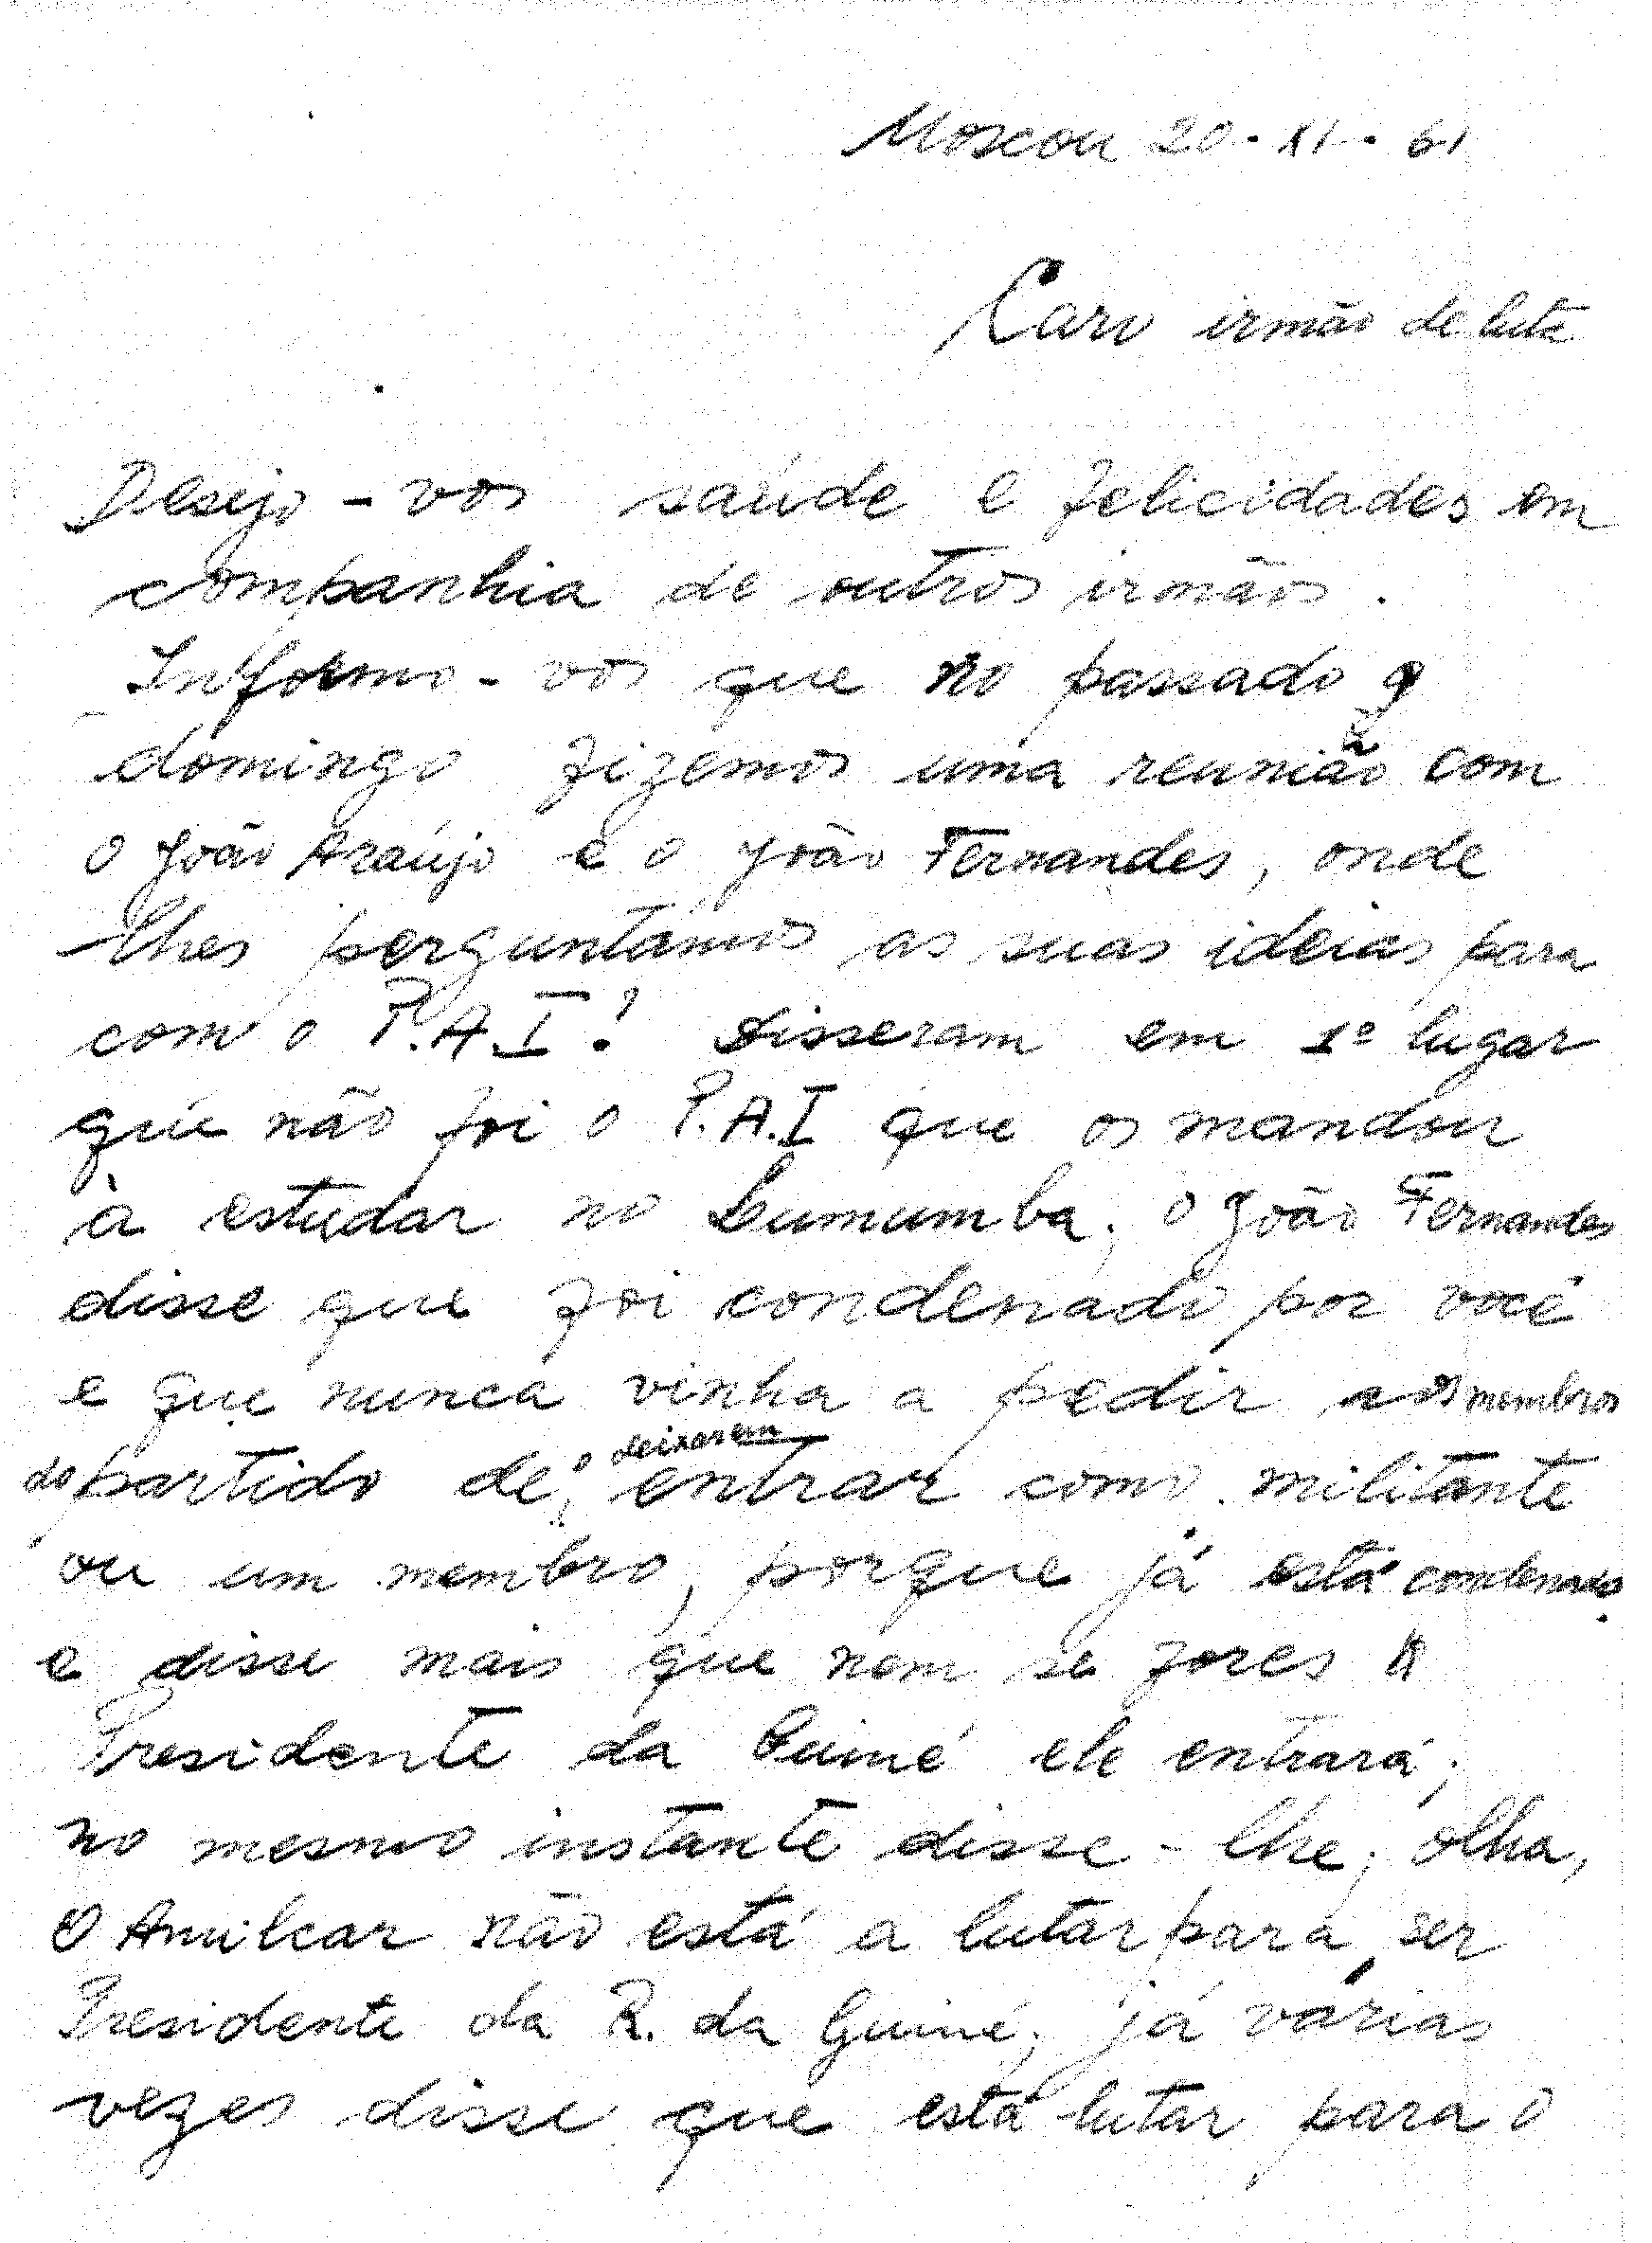 Moscou 20.XI.61
Caro irmão de luta
Desejo-vos saúde e felicidades em
companhia de outros irmãos.
Informo-vos que no passado
domingo fizemos uma reunião com
o João Araújo e o João Fernandes, onde
lhes perguntámos as suas ideias para
com o P.A.I? Disseram em 1º lugar
que não foi o P.A.I que os mandou
à estudar no Lumumba; o João Fernandes
disse que foi condenado por você
e que nunca vinha a pedir aos membros
do partido de o deixarem entrar como militante
ou um membro, porque já está condenado.
e disse mais que nem se fores
Presidente da Guiné ele entrará;
no mesmo instante disse-lhe; olha,
o Amilcar não está a lutar para ser
Presidente da R. da Guiné; já várias
vezes disse que está lutar para o